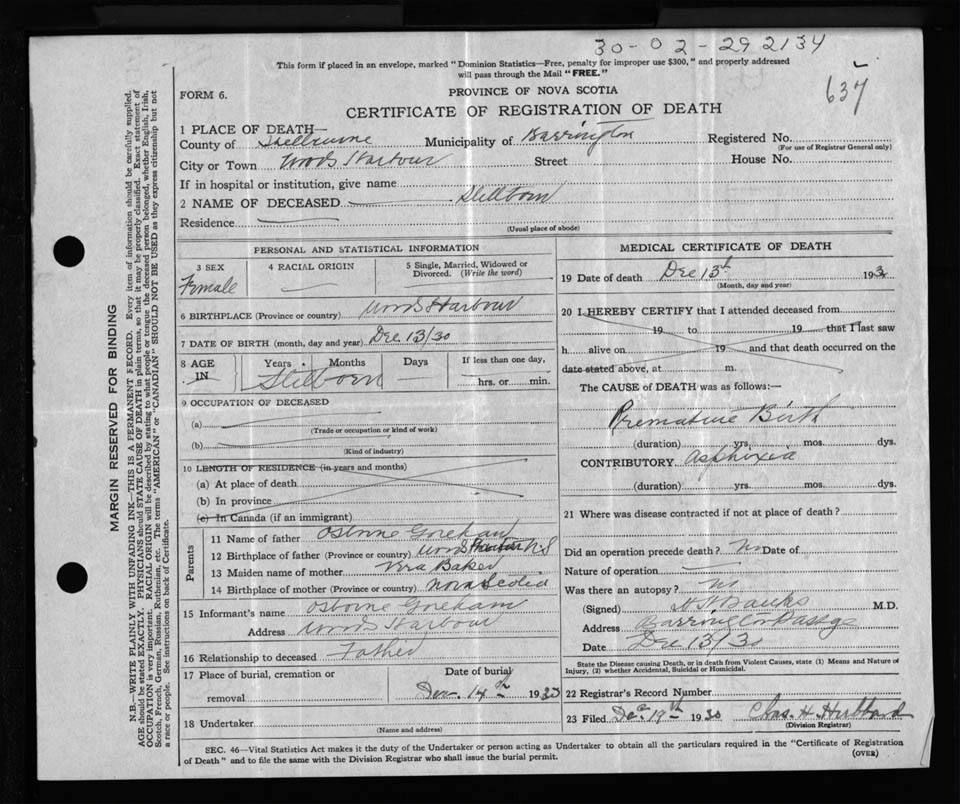 30-02-292134
637
This form if placed in an envelope, marked "Dominion Statistics—Free, penalty for improper use $300," and properly addressed
will pass through the Mail "FREE."
FORM 6.
PROVINCE OF NOVA SCOTIA
CERTIFICATE OF REGISTRATION OF DEATH
1 PLACE OF DEATH—
County of Shelburne Municipality of Barrington Registered No.
(For use of Registrar General only)
City or Town Woods Harbour Street House No.
If in hospital or institution, give name
2 NAME OF DECEASED Stillborn
Residence
(Usual place of abode)
PERSONAL AND STATISTICAL INFORMATION
3 SEX 4 RACIAL ORIGIN 5 Single, Married, Widowed or
Divorced. (Write the word)
Female
6 BIRTHPLACE (Province or country) Woods Harbour
7 DATE OF BIRTH (month, day and year) Dec 13/30
8 AGE Years Months Days If less than one day,
IN Stilborn hrs. or min.
9 OCCUPATION OF DECEASED
(a)
(Trade or occupation or kind of work)
(b)
(Kind of industry)
10 LENGTH OF RESIDENCE (in years and months)
(a) At place of death
(b) In province
(c) In Canada (if an immigrant)
Parents
11 Name of father Osborne Goreham
12 Birthplace of father (Province or country) Woods Harbour N S
13 Maiden name of mother Vera Baker
14 Birthplace of mother (Province or country) Nova Scotia
15 Informant's name Osborne Goreham
Address Woods Harbour
16 Relationship to deceased Father
17 Place of burial, cremation or Date of burial
removal Dec 14th 1930
18 Undertaker
(Name and address)
MEDICAL CERTIFICATE OF DEATH
19 Date of death Dec 13th 193
(Month, day and year)
20 I HEREBY CERTIFY that I attended deceased from
19 to 19 that I last saw
h alive on 19 and that death occurred on the
date stated above, at m.
The CAUSE of DEATH was as follows:—
Premature Birth
(duration) yrs. mos. dys.
CONTRIBUTORY Asphixia
(duration) yrs. mos. dys.
21 Where was disease contracted if not at place of death?
Did an operation precede death? No Date of
Nature of operation
Was there an autopsy? No
(Signed) Banks M.D.
Address Barrington Passage
Dec 13/30
State the Disease causing Death, or in death from Violent Causes, state (1) Means and Nature of
Injury, (2) whether Accidental, Suicidal or Homicidal.
22 Registrar's Record Number
23 Filed Dec 19th 1930 Chas. H. Hubbard
(Division Registrar)
SEC. 46—Vital Statistics Act makes it the duty of the Undertaker or person acting as Undertaker to obtain all the particulars required in the "Certificate of Registration
of Death" and to file the same with the Division Registrar who shall issue the burial permit.
(OVER)
MARGIN RESERVED FOR BINDING
N.B.—WRITE PLAINLY WITH UNFADING INK—THIS IS A PERMANENT RECORD. Every item of information should be carefully supplied.
AGE should be stated EXACTLY. PHYSICIANS should STATE CAUSE OF DEATH in plain terms, so that it may be properly classified. Exact statement of
OCCUPATION is very important. RACIAL ORIGIN will be described by stating to what people or tongue the deceased person belonged, whether English, Irish,
Scotch, French, German, Russian, Ruthenian, etc. The terms "AMERICAN" or "CANADIAN" SHOULD NOT BE USED as they express citizenship but not
a race or people. See instructions on back of Certificate.